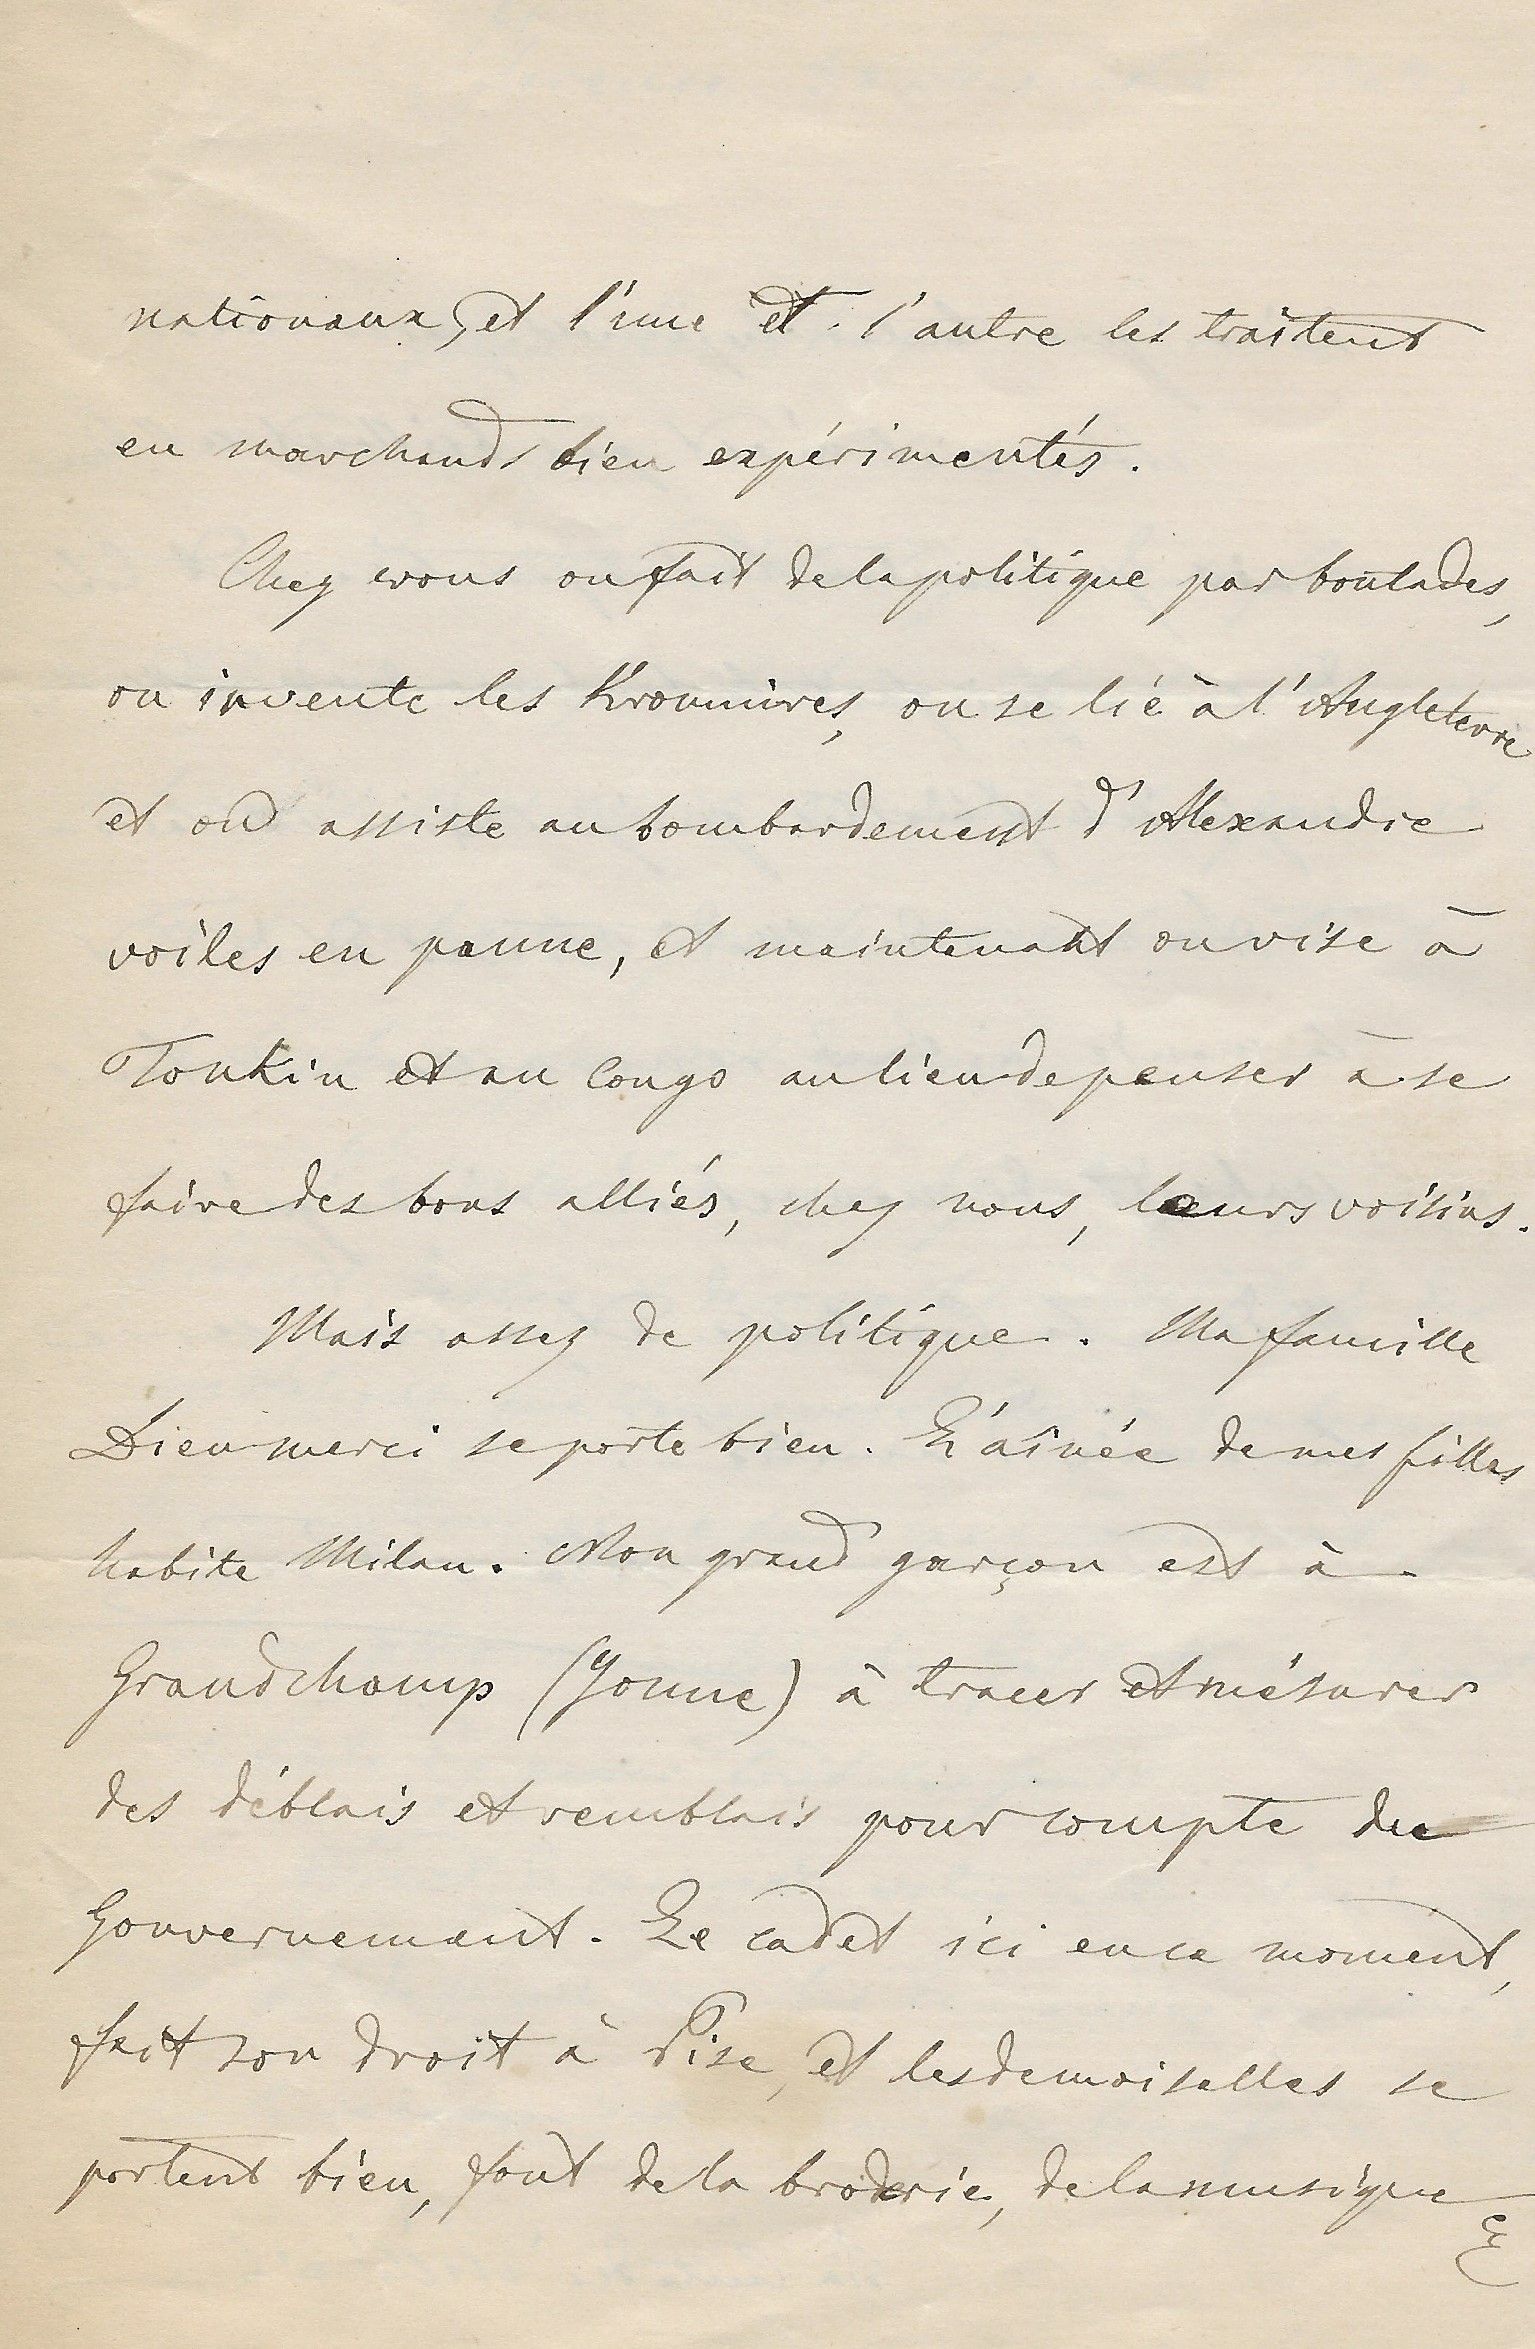 nationaux, et l'une et l'autre les traitent
en marchands bien expérimentés.
Chez vous on fait de la politique par boutades,
on invente les Kroumires, on se lie à l'Angleterre
et on assiste au bombardement d'Alexandrie
voiles en panne, et maintenant on vise à
Tonkin et au Congo au lieu de penser à se
faire des bons alliés, chez nous, leurs voisins.
Mais assez de politique. Ma famille
Dieu merci se porte bien. L'aînée de mes filles
habite Milan. Mon grand garçon est à
Grandchamp (Yonne) à tracer et mésurer
des déblais et remblais pour compte du
Gouvernement. Le cadet ici en ce moment,
fait son droit à Pise, et les demoiselles se
portent bien, font de la broderie, de la musique
&